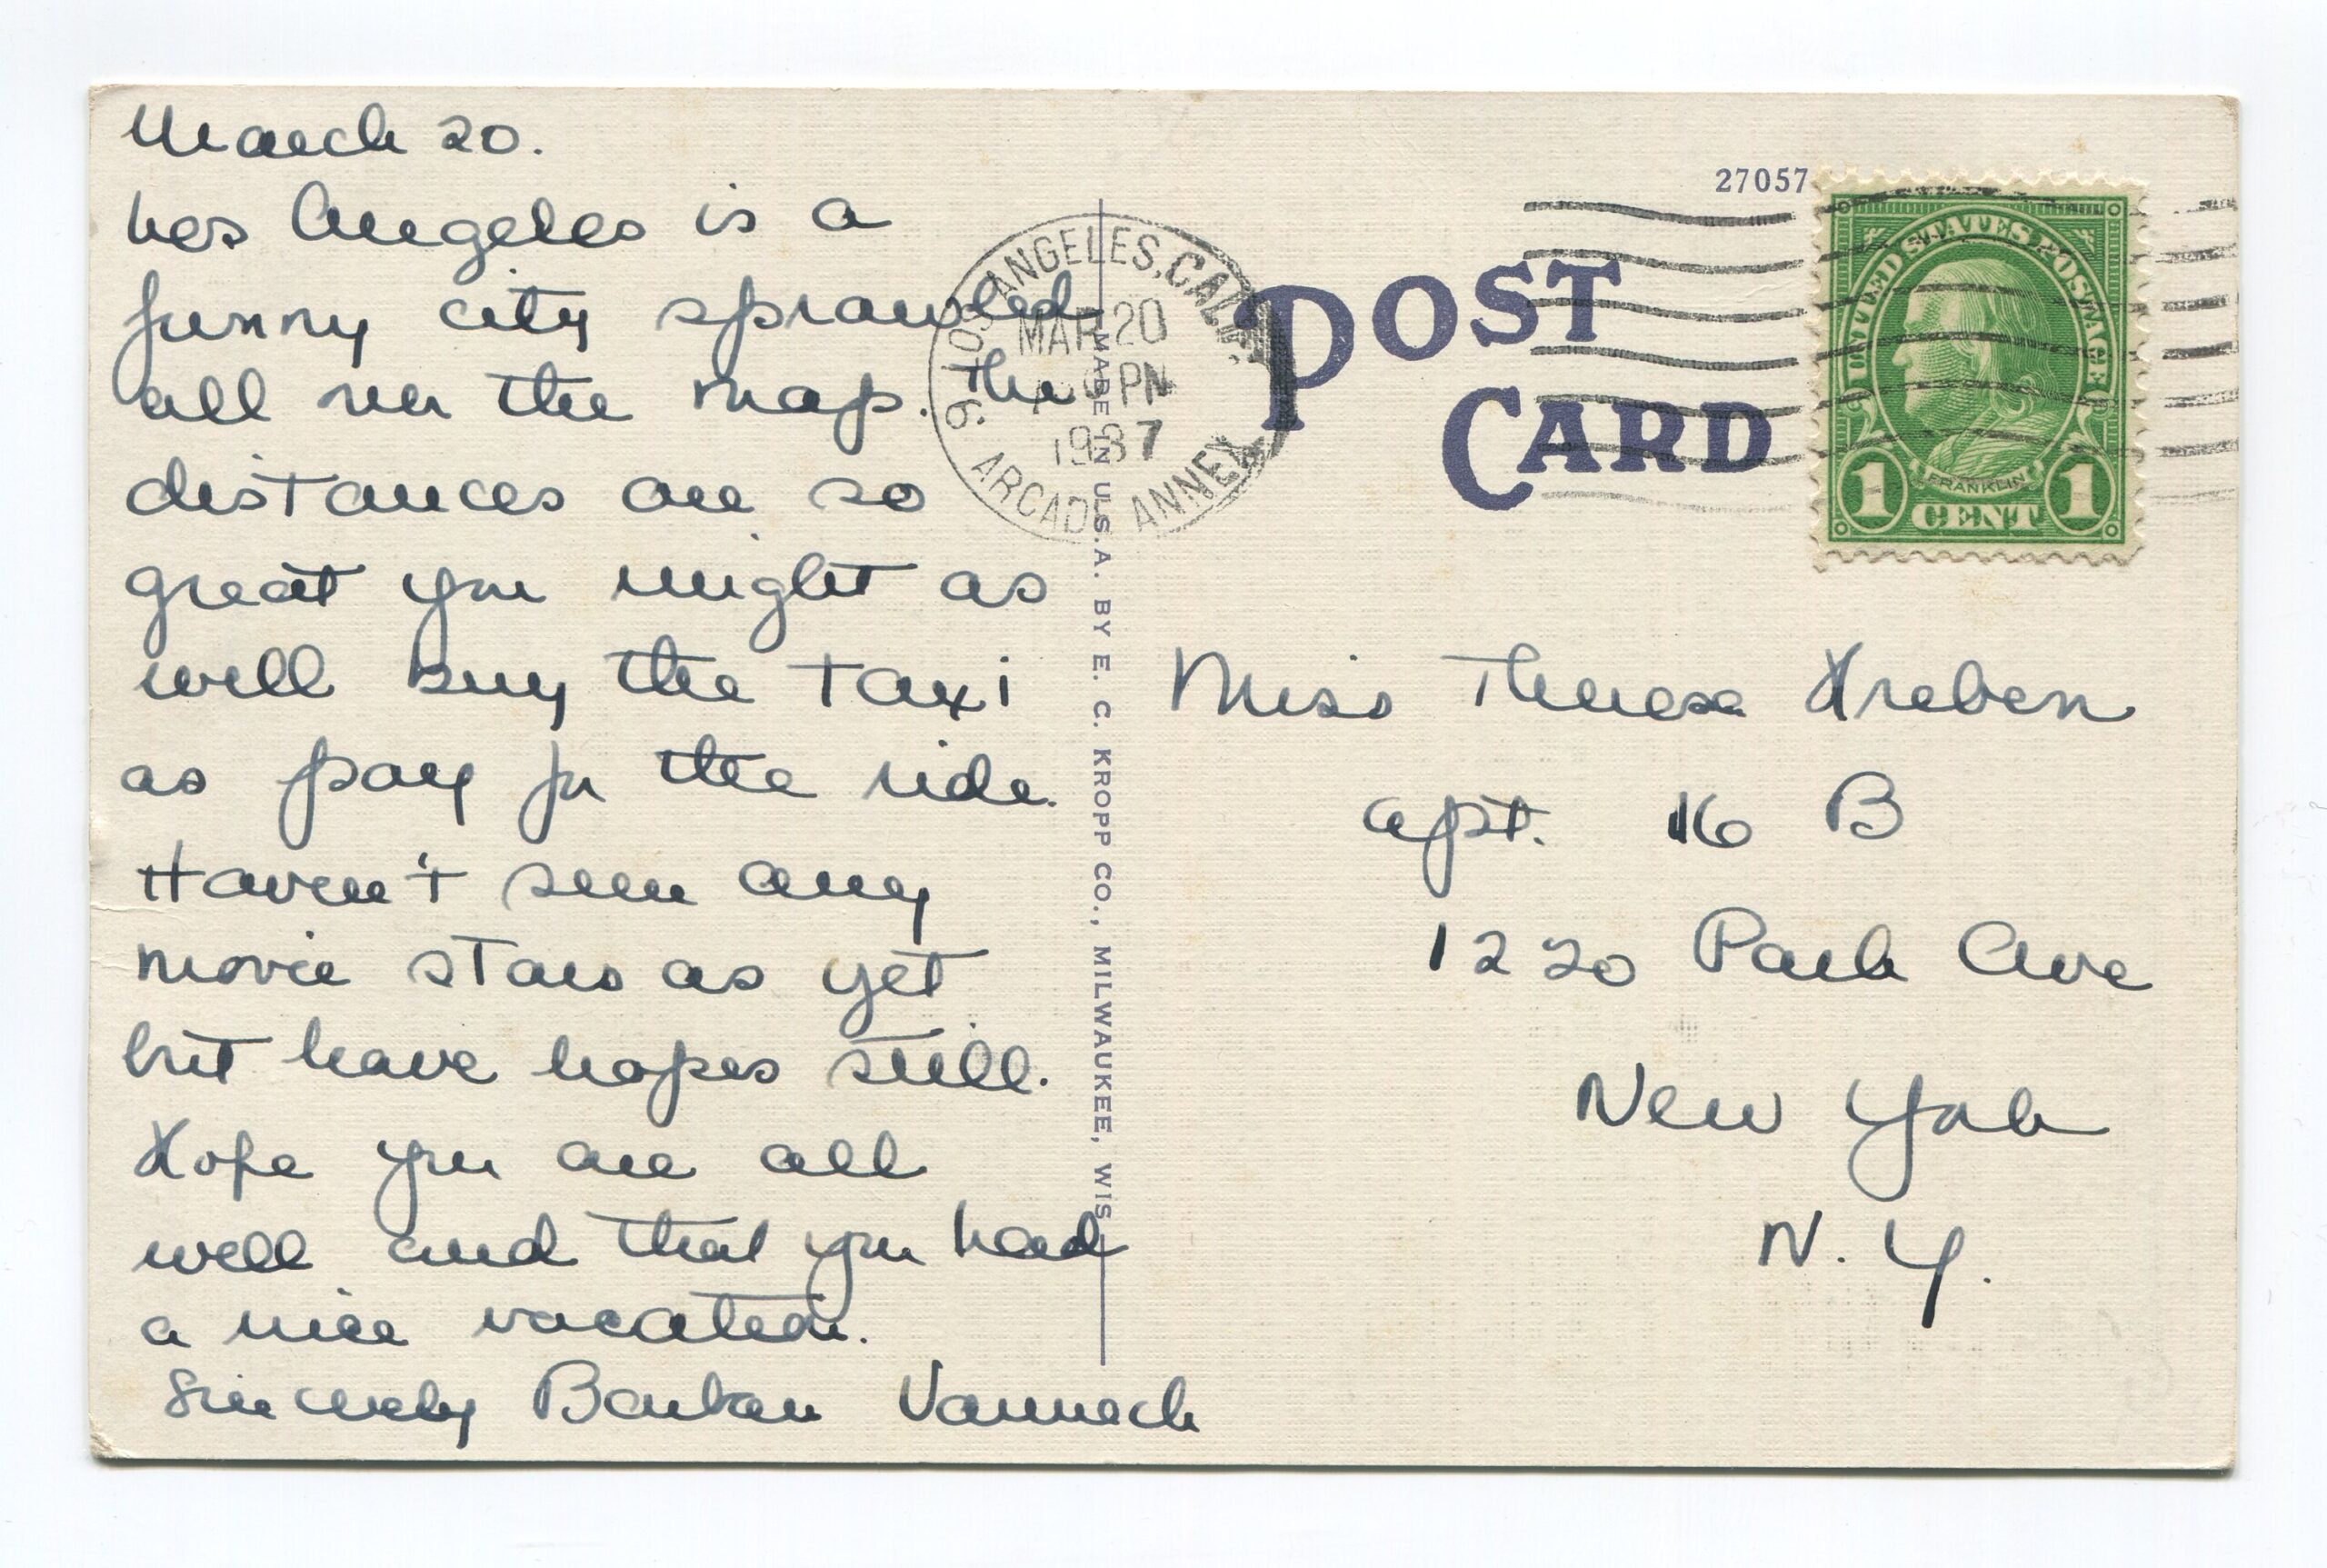 March 20.
Los Angeles is a
funny city sprawled
all over the map. The
distances are so
great you might as
well buy the taxi
as pay for the ride.
Haven't seen any
movie stars as yet
but have hopes still.
Hope you are all
well and that you had
a nice vacation.
Sincerely Barbara
LOS ANGELES, CALIF.
MAR 20
PM
1937
ARCADE ANNEX
MADE IN U.S.A. BY E. C. KROPP CO., MILWAUKEE, WIS
27057
POST
CARD
UNITED STATES POSTAGE
FRANKLIN
1 CENT 1
Miss Theresa
Apt. 16 B
1220 Park Ave
New York
N. Y.